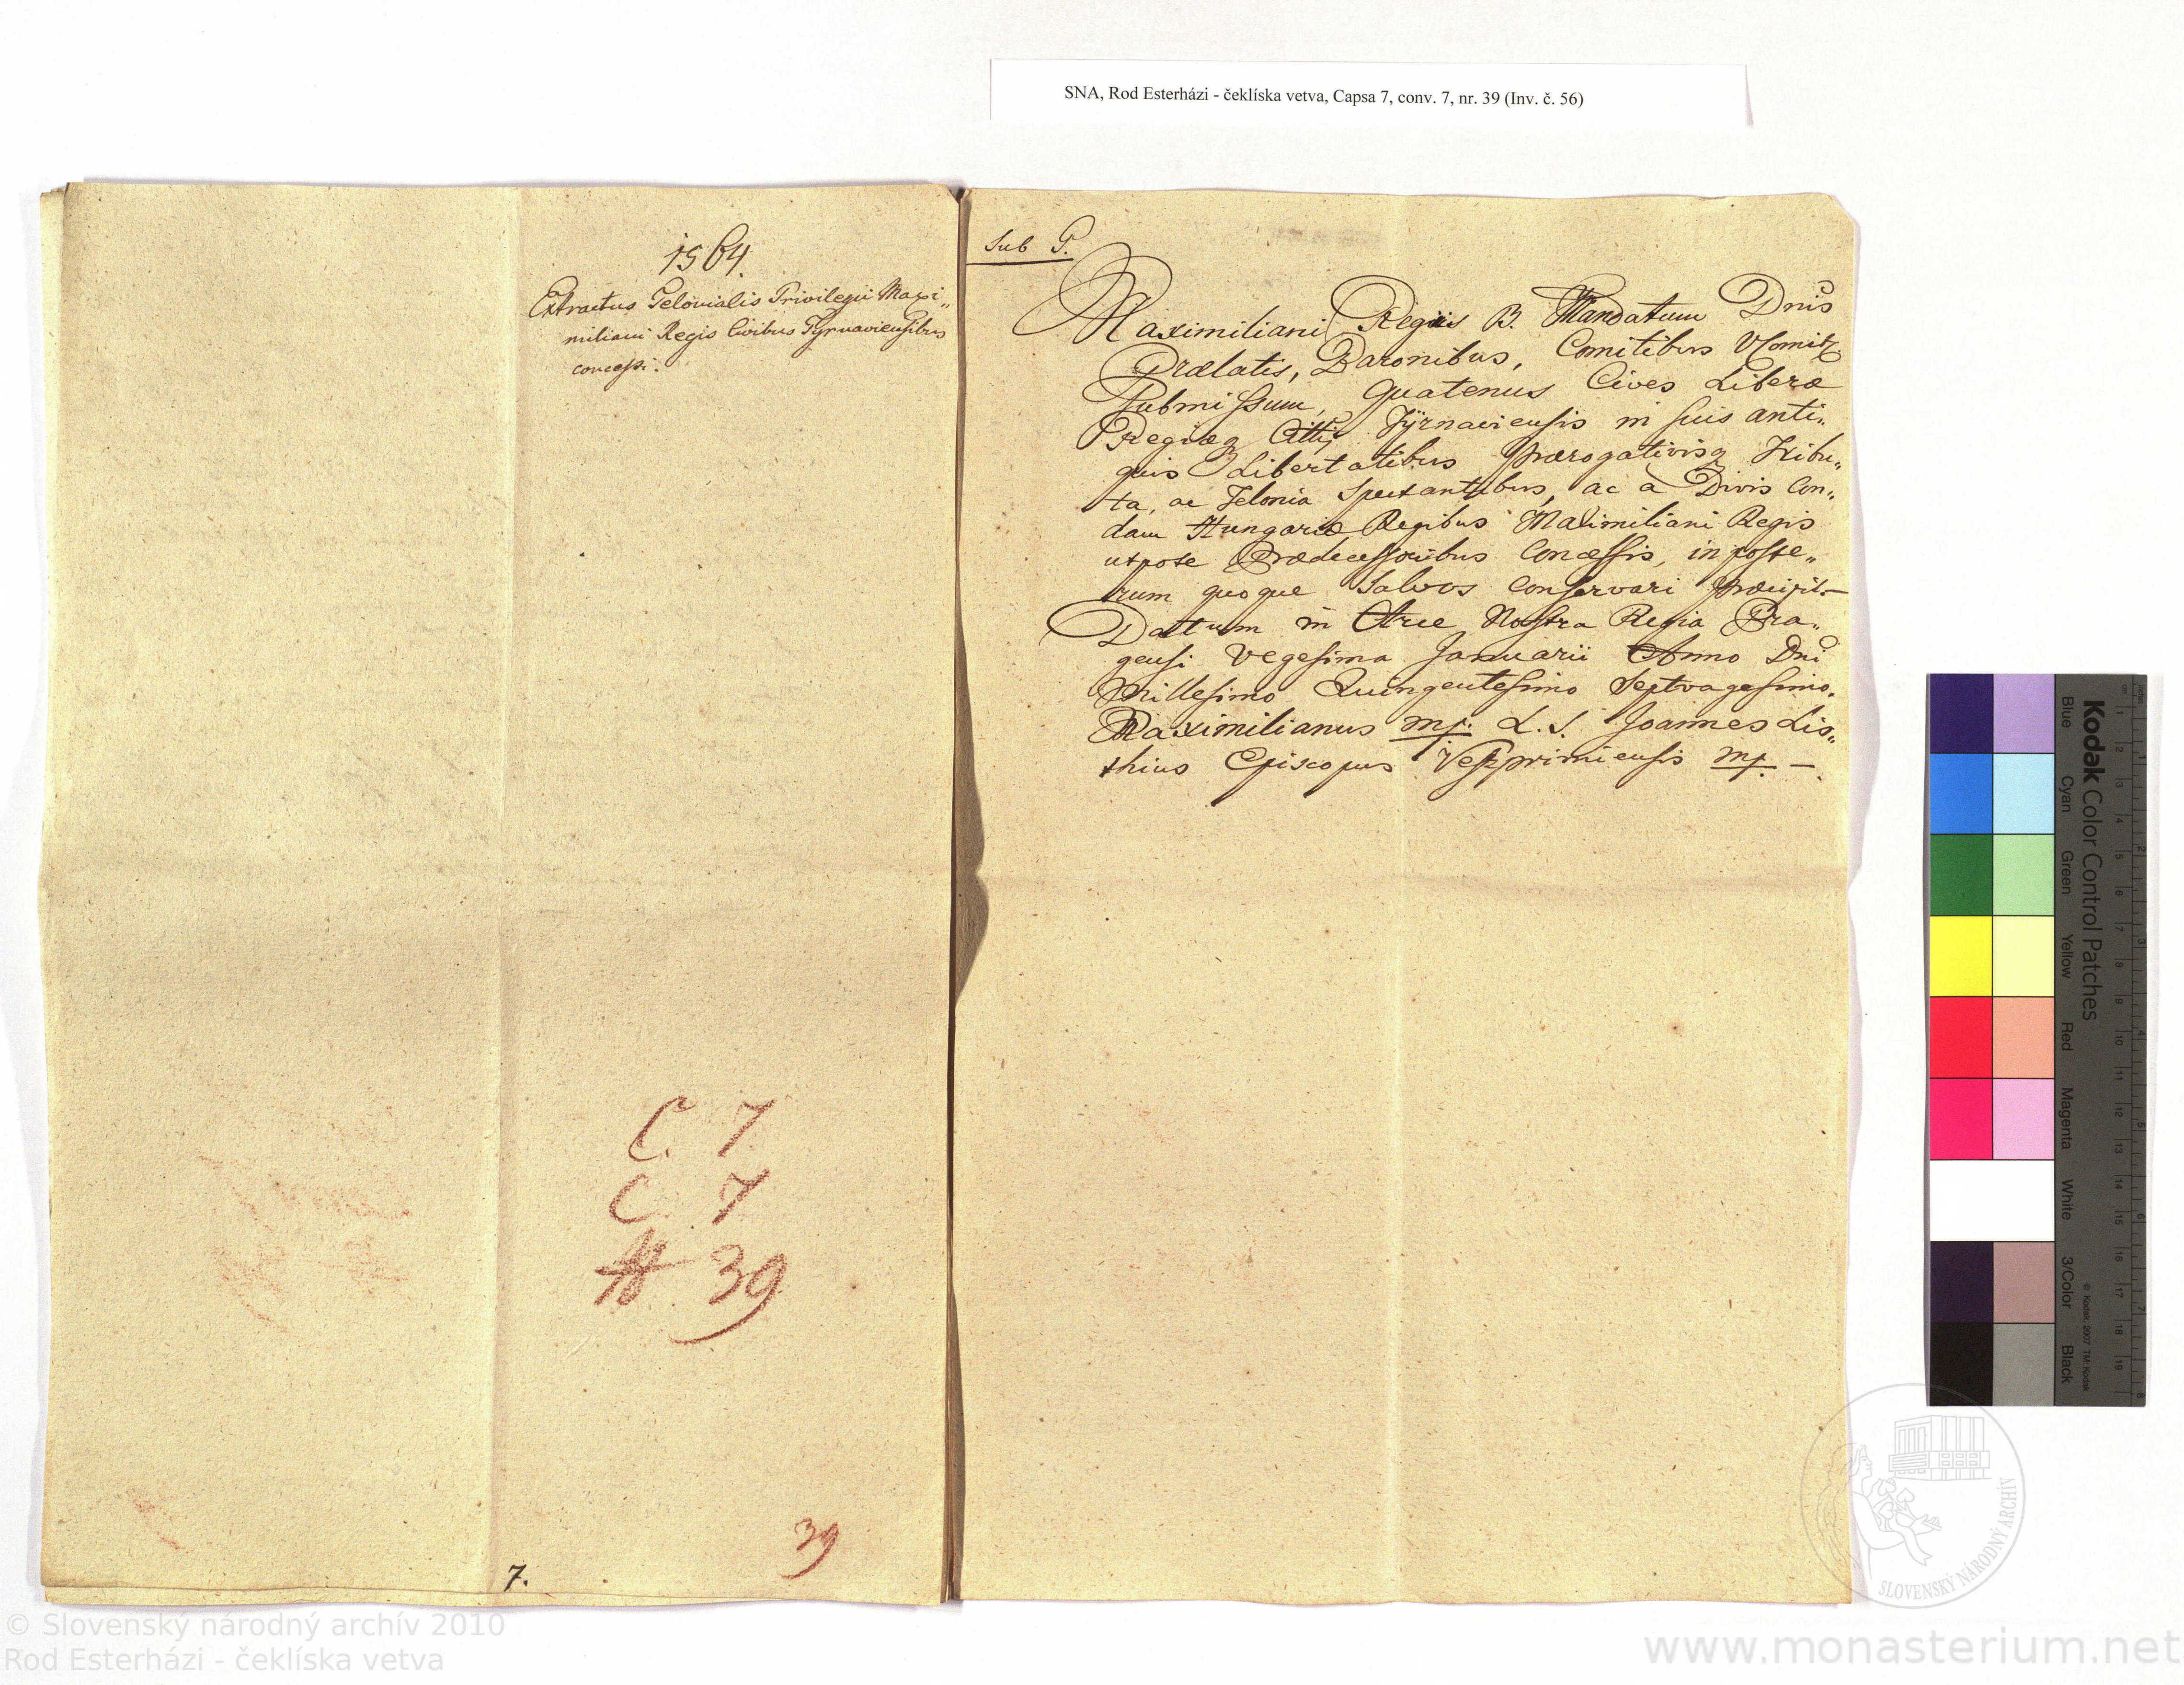 SNA, Rod Esterházi - čeklíska vetva, Capsa 7, conv. 7, nr. 39 (Inv. č. 56)
1564.
Extractus Telonialis Privilegii Maxi„
miliani Regis Civibus Tyrnaviensibus
concessi.
C. 7
C 7
39
39
7.
Sub
Maximiliani Regis B. Mandatum Dnis
Prælatis, Baronibus, Comitibus VComitz
Submissum, quatenus Cives Liberæ
Regiæq Cittis Tÿrnaviensis in suis anti„
quis Libertatibus prærogativisq Tribu„
ta, ac Telonia Spectantibus, ac à Divis Con„
dam Hungariæ Regibus Maximiliani Regis
utpote Prædecessoribus Concessis, in poste„
rum quoque Salvos Conservari præcipit.—
Datum in Arce Nostra Regia Pra„
gensi Vegesima Januarii Anno Dni
Millesimo Quingentesimo Septvagesimo.
Maximilianus mp. L. S. Joannes Lis„
thius Episcopus Veszprimiensis mp. —
Kodak Color Control Patches
Blue Cyan Green Yellow Red Magenta White 3/Color Black
© Kodak, 2007 TM: Kodak
SLOVENSKÝ NÁRODNÝ ARCHÍV
© Slovenský národný archív 2010
Rod Esterházi - čeklíska vetva
www.monasterium.net